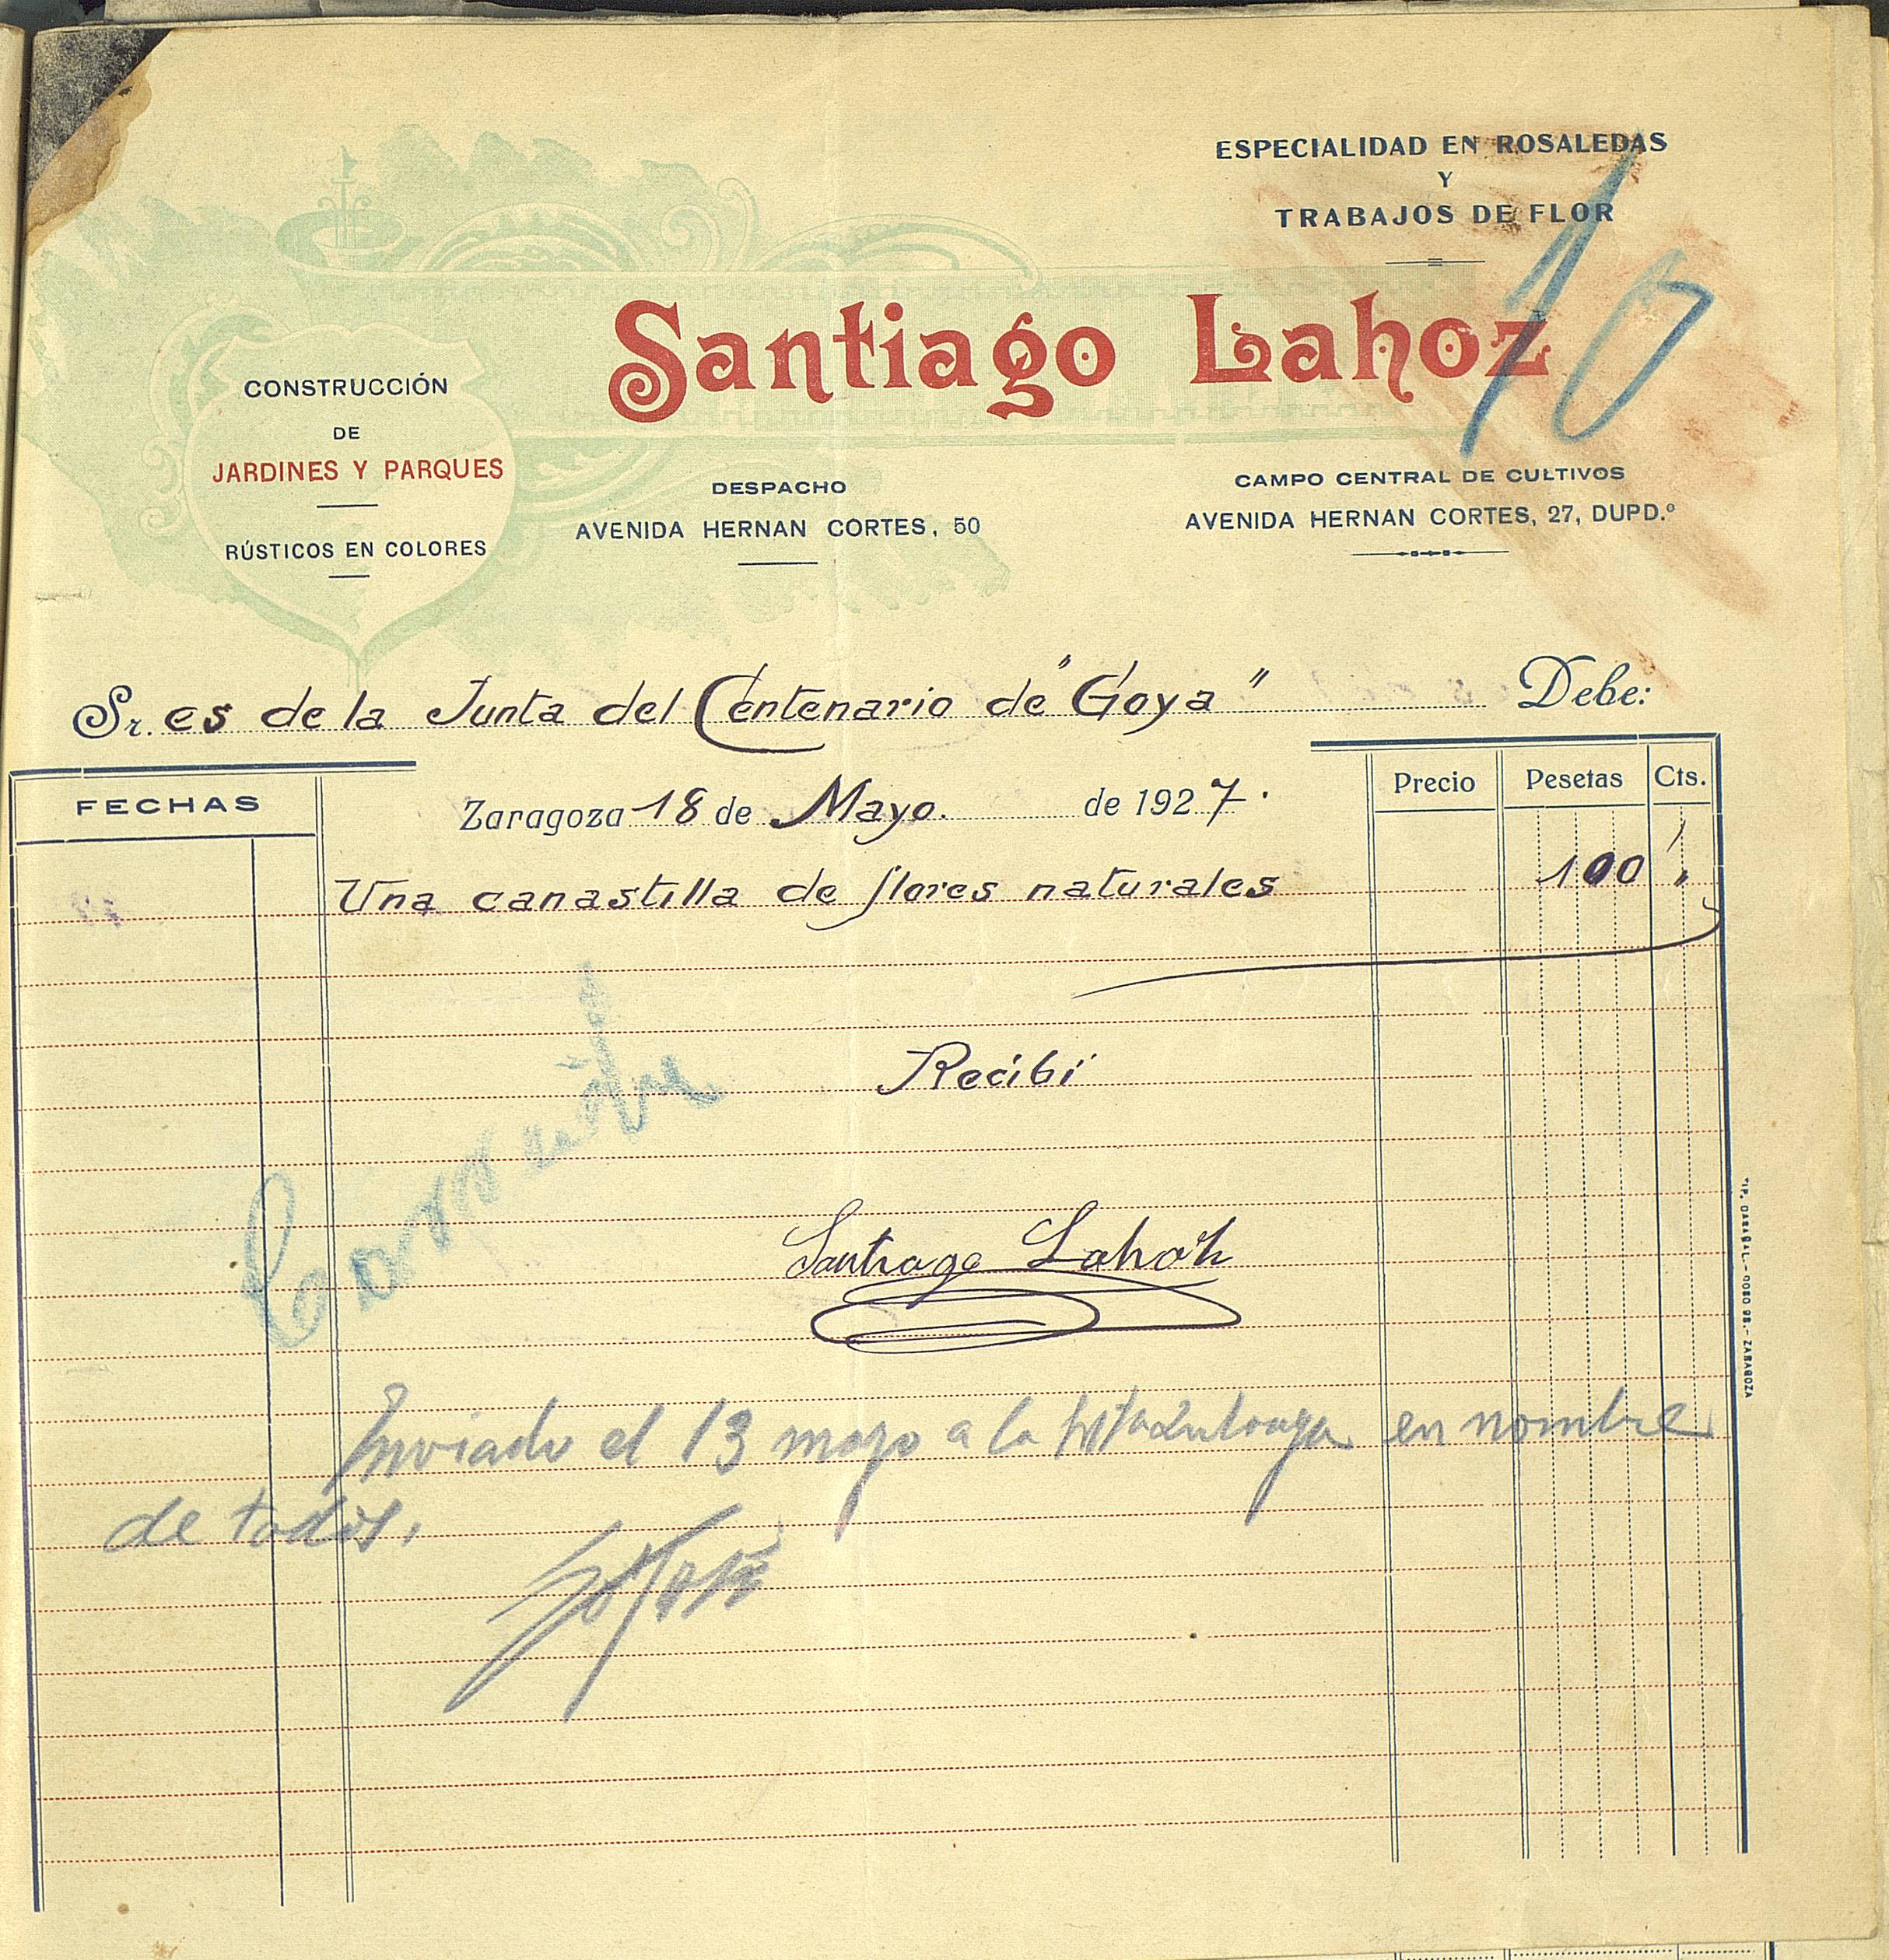 ESPECIALIDAD EN ROSALEDAS
Y
TRABAJOS DE FLOR
10
Santiago Lahoz
CONSTRUCCIÓN
DE
JARDINES Y PARQUES
RÚSTICOS EN COLORES
DESPACHO
AVENIDA HERNAN CORTES, 50
CAMPO CENTRAL DE CULTIVOS
AVENIDA HERNAN CORTES, 27, DUPD.º
Sr.es de la Junta del Centenario de "Goya" Debe:
FECHAS
Zaragoza 18 de Mayo. de 1927.
Precio Pesetas Cts.
Una canastilla de flores naturales 100 "
Recibí
Santiago Lahoz
Enviado el 13 mayo a la en nombre
de todos.
TIP. - COSO 98. - ZARAGOZA